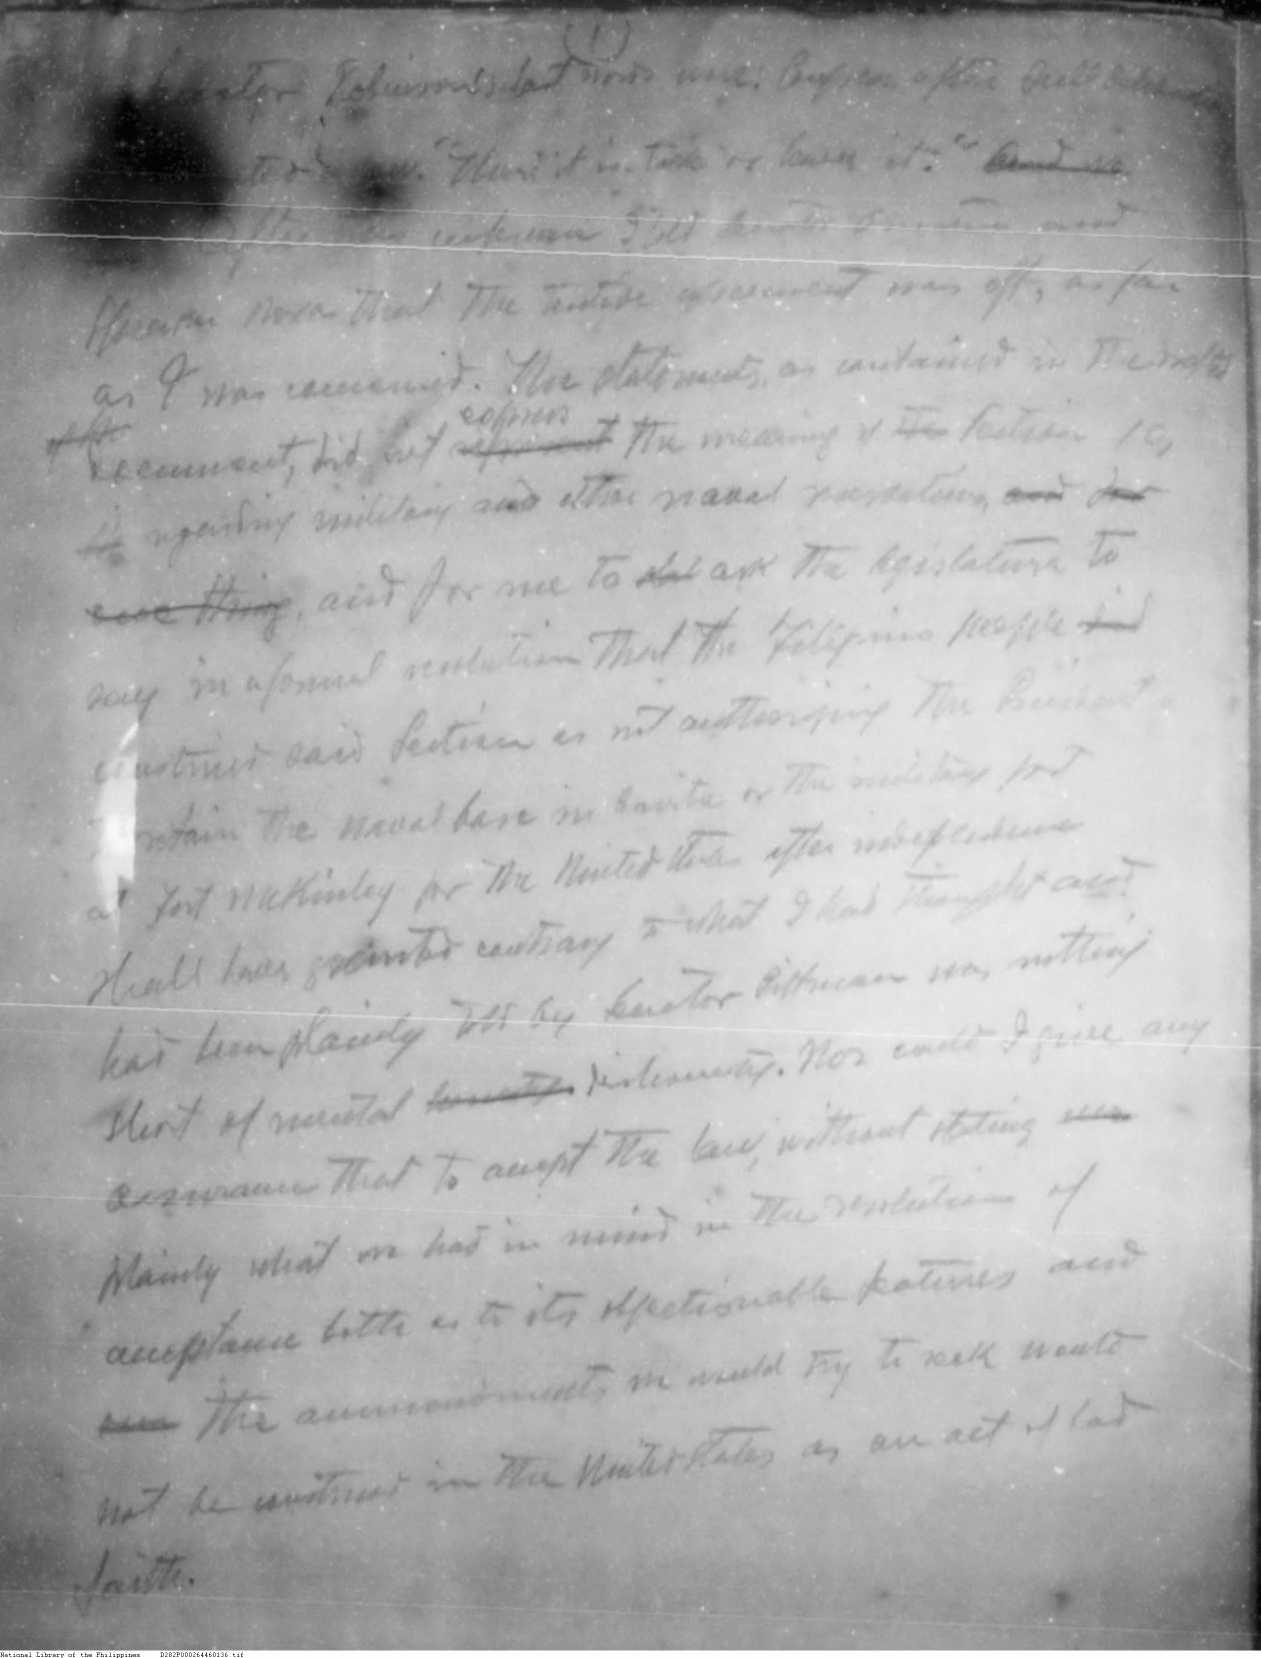 (1)
Senator Robinson's last words were: Congress after full
"There it is. Take or leave it." And so
after this conference I told Senator and
Speaker that the entire agreement was off, as far
as I was concerned. The statements, as contained in the drafted
express
document, did not represent the meaning of the Section 10,
regarding military and other naval reservations, and for
one thing, and for me to did ask the legislature to
say in a formal resolution that the Filipino people had
construed said Section as not authorizing the President
retain the naval base in Cavite or the military post
at Fort McKinley for the United States after independence
shall have granted contrary to what I had thought and
had been plainly told by Senator Pittman was nothing
short of mental honesty dishonesty. Nor could I give any
assurance that to accept the law, without stating
plainly what we had in mind in the resolution of
acceptance both as to its objectionable features and
the ammendments we would try to seek would
not be construed in the United States as an act of bad
faith.
National Library of the Philippines D282P000264460136.tif